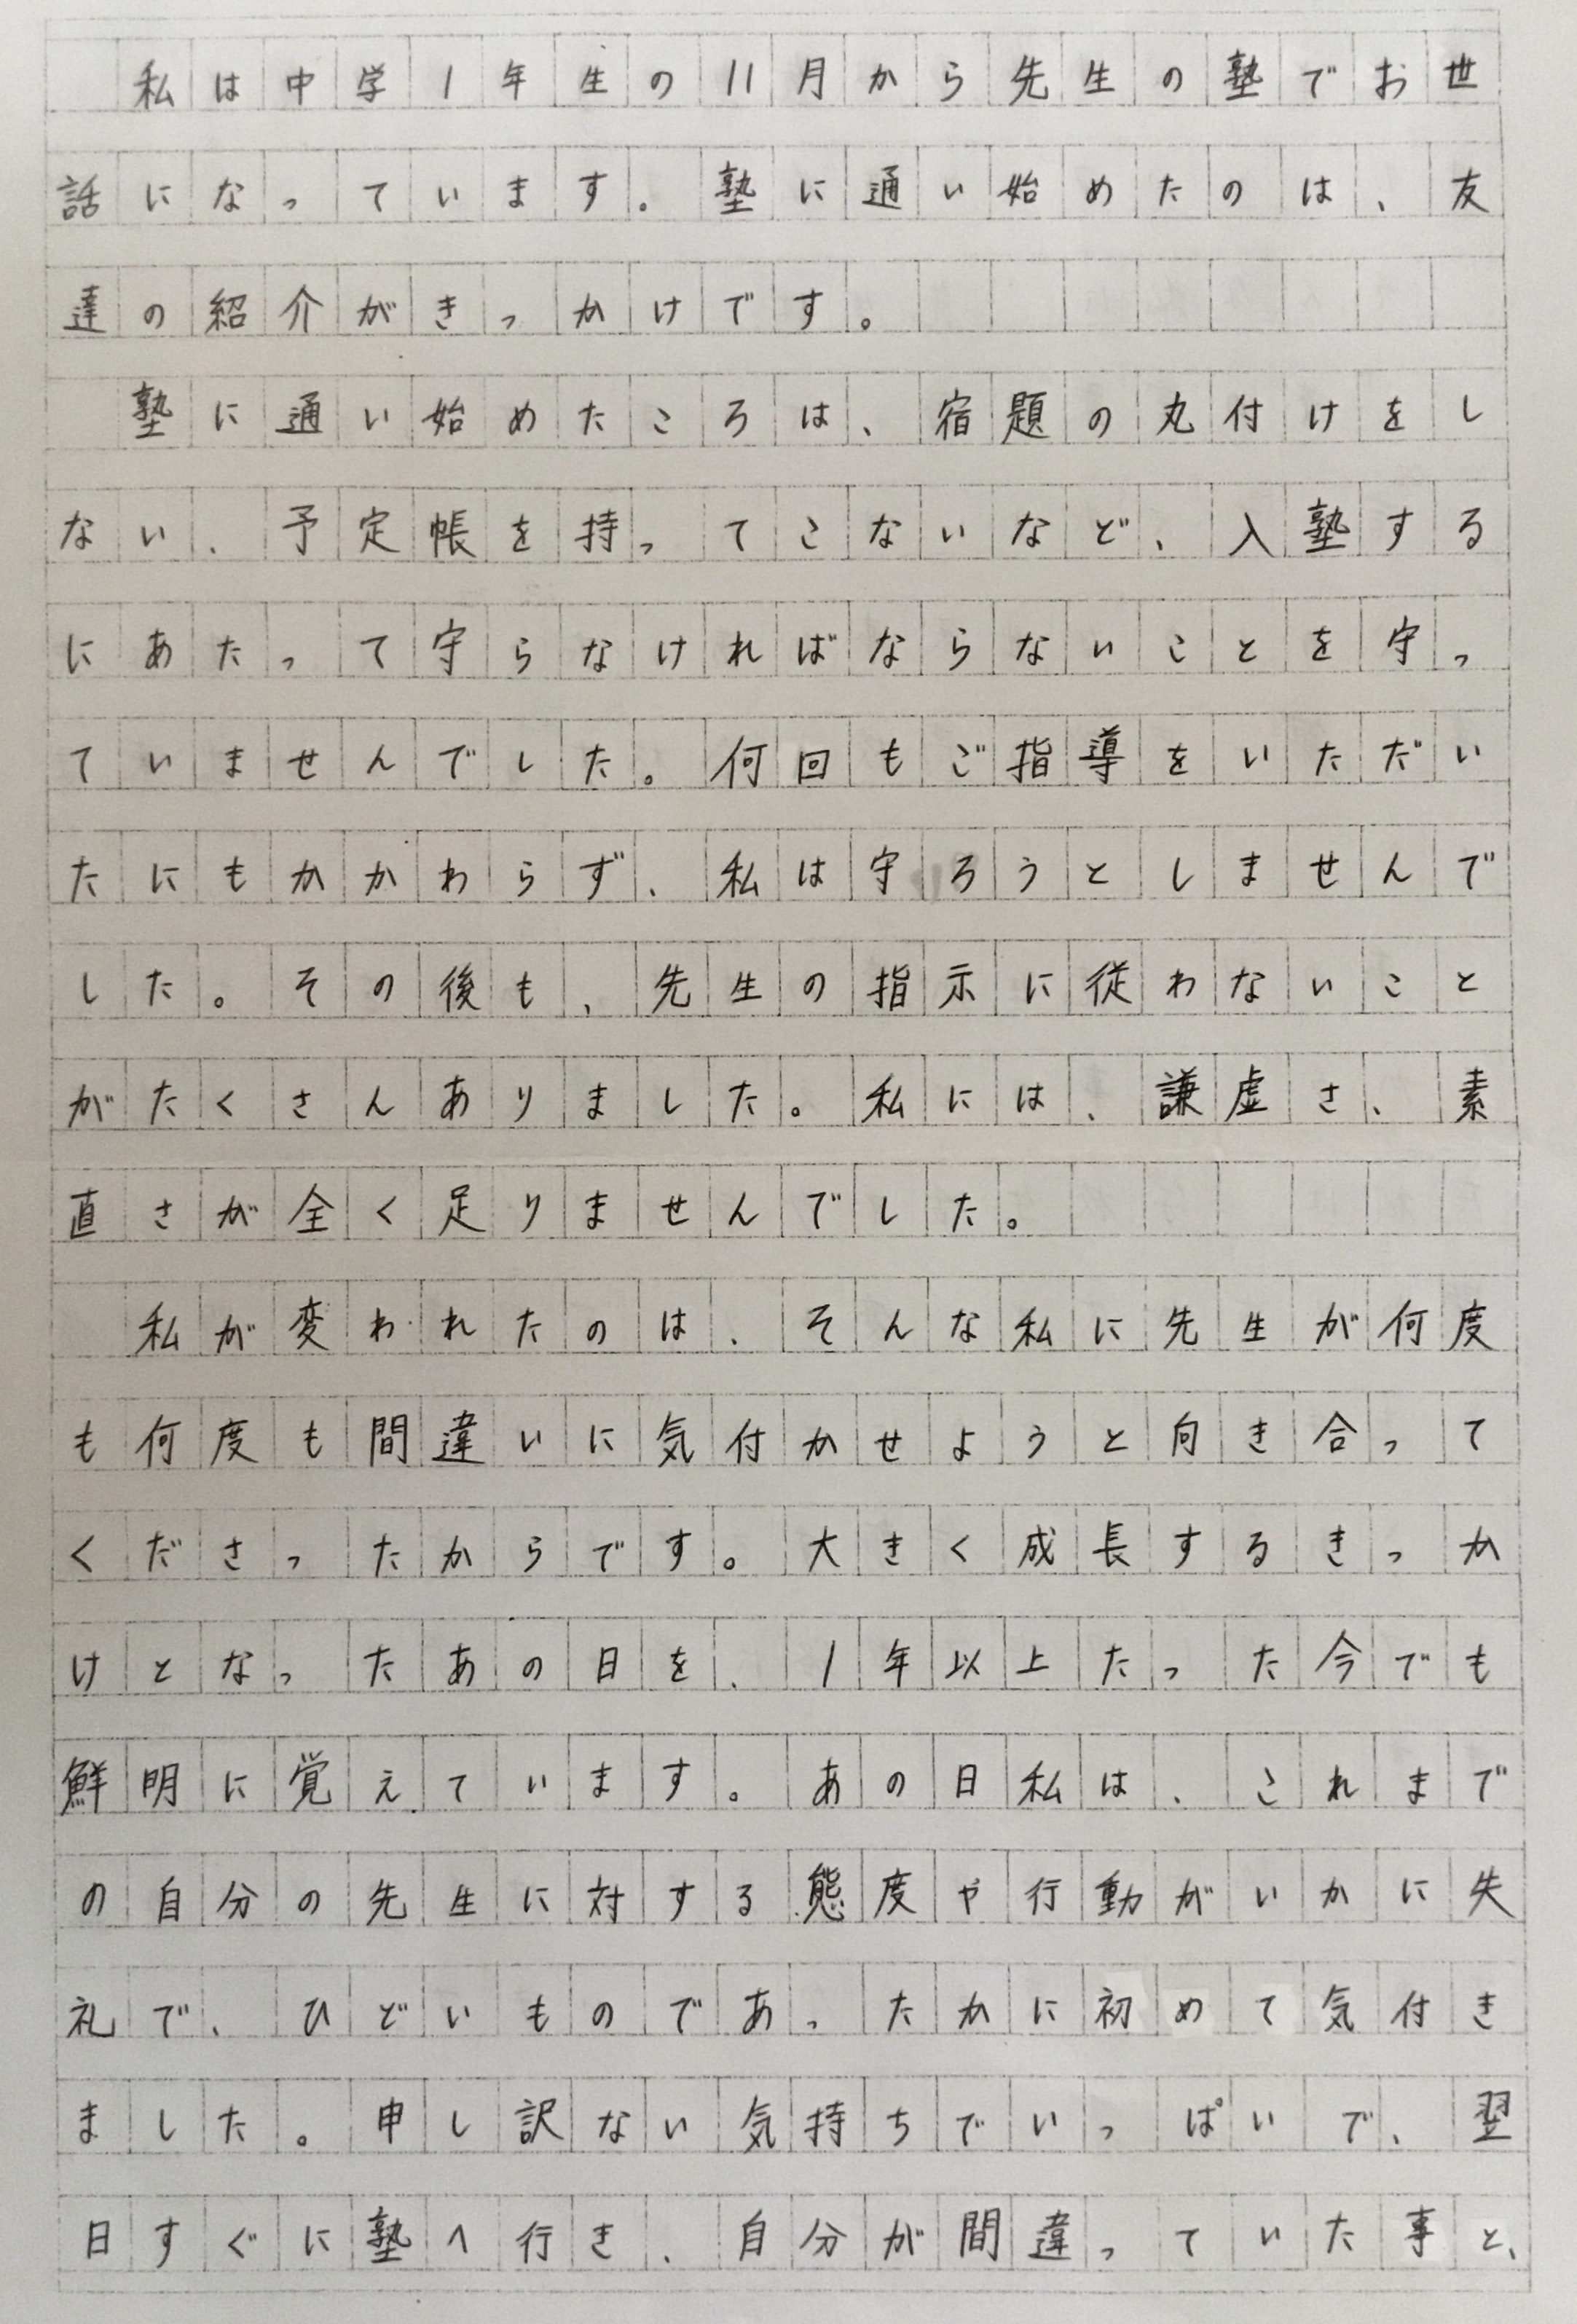 私は中学1年生の11月から先生の塾でお世
話になっています。塾に通い始めたのは、友
達の紹介がきっかけです。
塾に通い始めたころは、宿題の丸付けをし
ない、予定帳を持ってこないなど、入塾する
にあたって守らなければならないことを守っ
ていませんでした。何回もご指導をいただい
たにもかかわらず、私は守ろうとしませんで
した。その後も、先生の指示に従わないこと
がたくさんありました。私には、謙虚さ、素
直さが全く足りませんでした。
私が変われたのは、そんな私に先生が何度
も何度も間違いに気付かせようと向き合って
くださったからです。大きく成長するきっか
けとなったあの日を、1年以上たった今でも
鮮明に覚えています。あの日私は、これまで
の自分の先生に対する態度や行動がいかに失
礼で、ひどいものであったかに初めて気付き
ました。申し訳ない気持ちでいっぱいで、翌
日すぐに塾へ行き、自分が間違っていた事と、